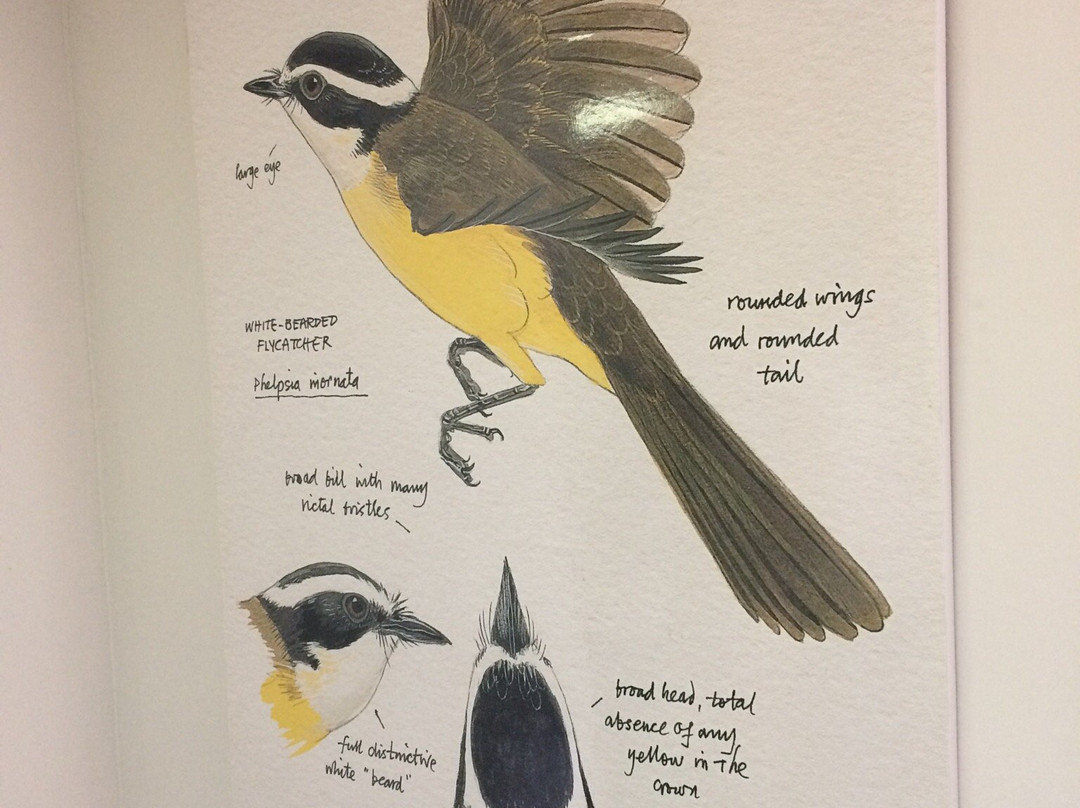 large eye
WHITE-BEARDED
FLYCATCHER
Phelpsia inornata
rounded wings
and rounded
tail
broad bill with many
rictal bristles
full distinctive
white "beard"
broad head, total
absence of any
yellow in the
crown